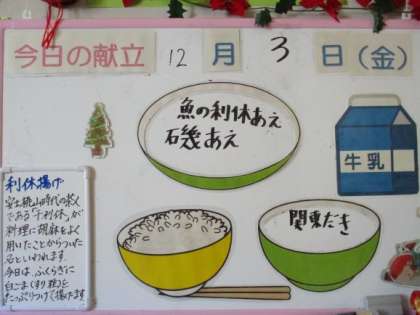 今日の献立 12 月 3 日（金）
魚の利休あえ
石幾あえ
牛乳
関東だき
利休揚げ
安土桃山時代の茶人
である「千利休」が
料理に胡麻をよく
用いたことからついた
名といわれます。
今日は、ふくらぎに
白ごま(すり・粒)を
たっぷりつけて揚げます